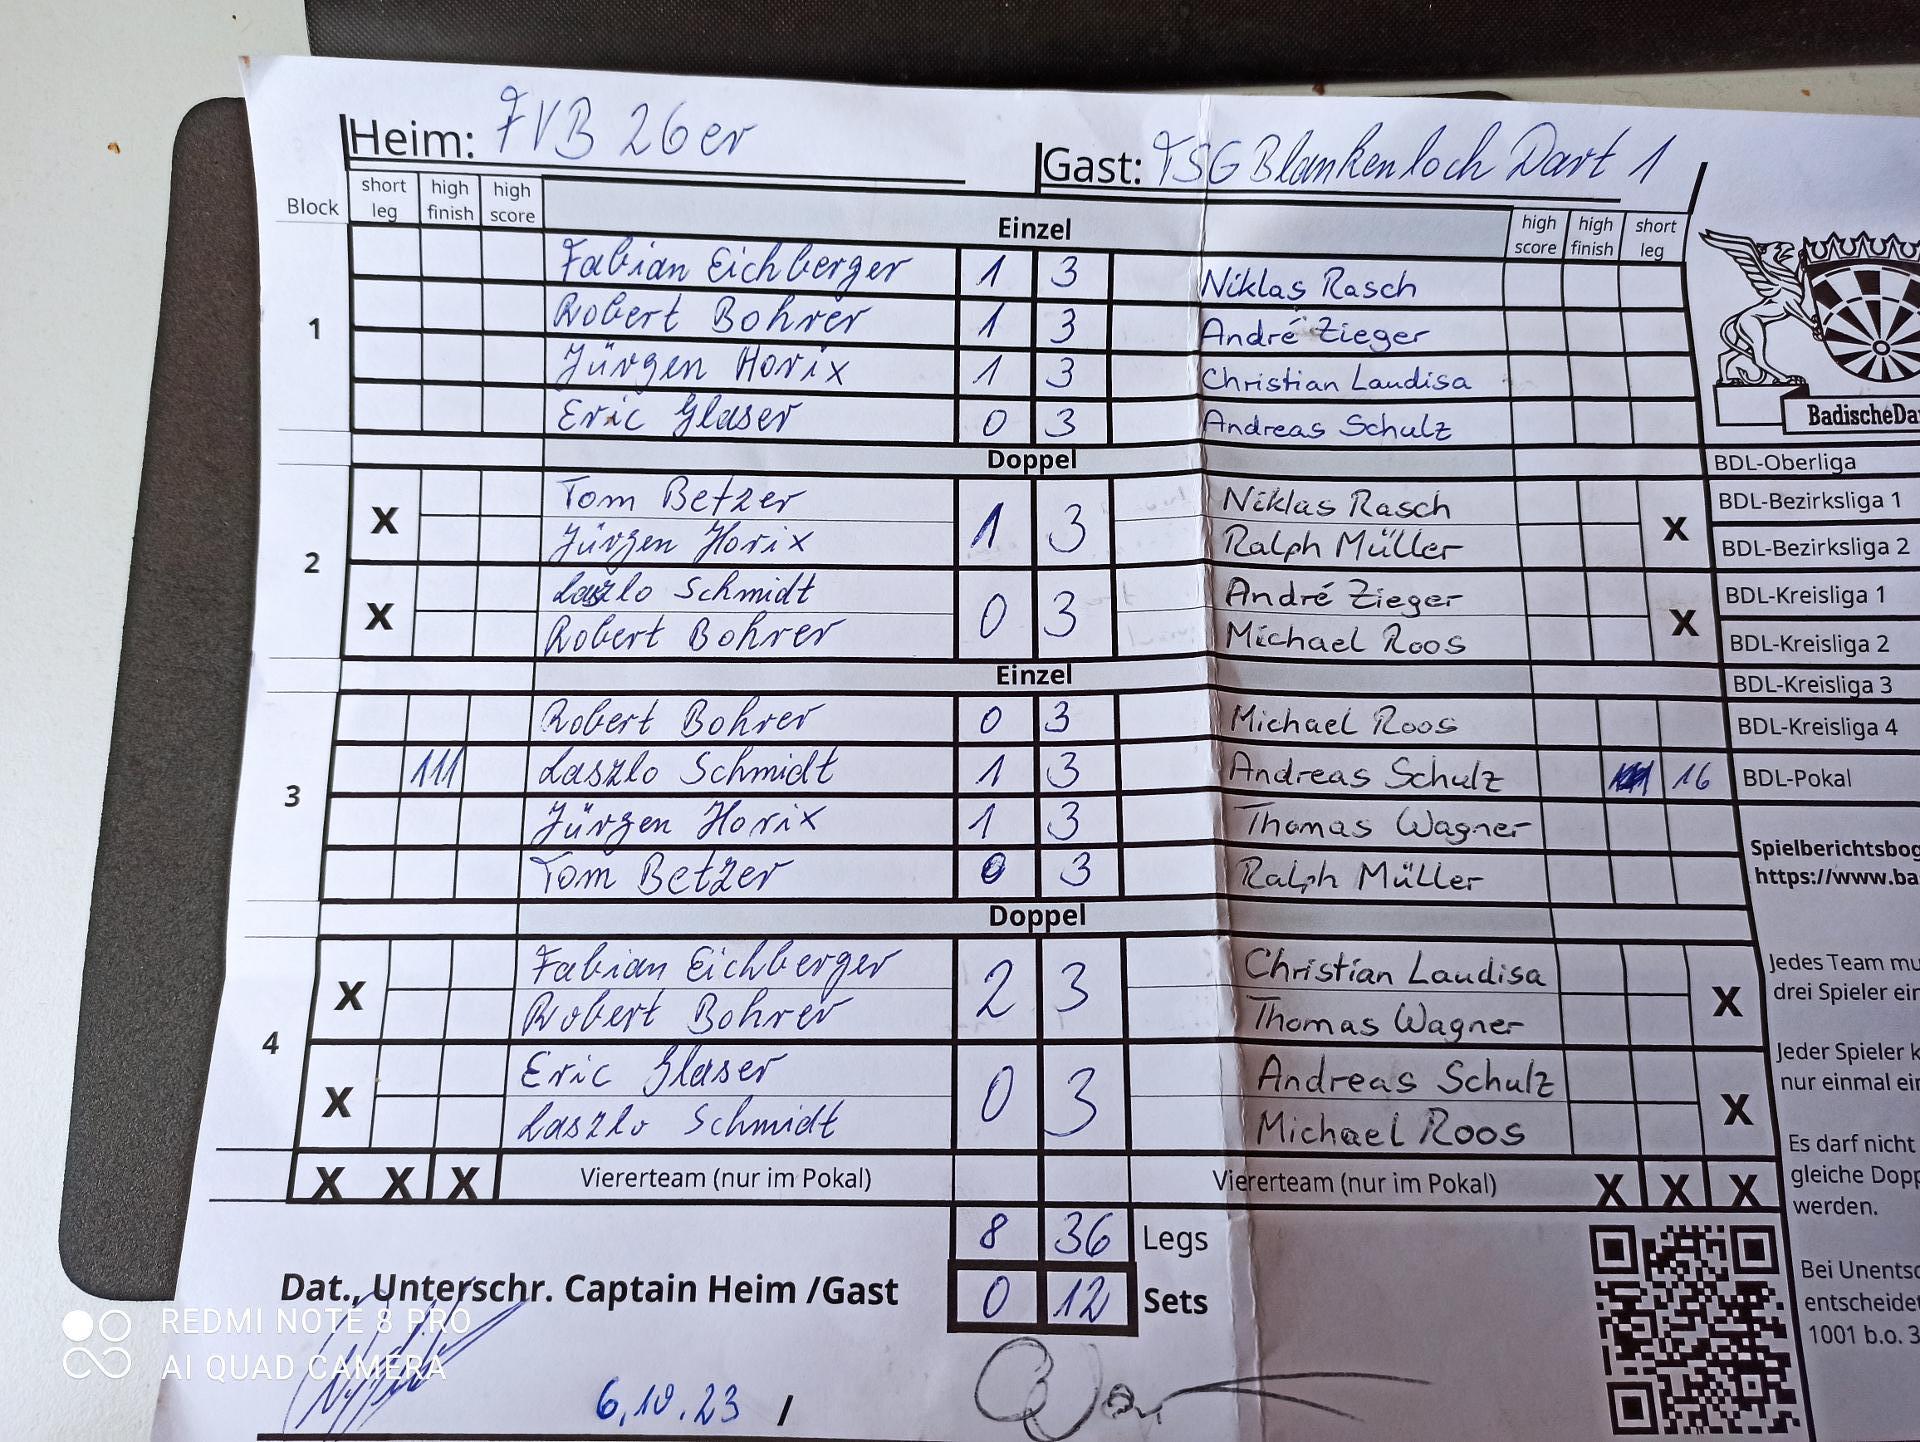 Heim: FVB 26er Gast: TSG Blankenloch Dart 1
Block short leg high finish high score Einzel high score high finish short leg
1
Fabian Eichberger 1 3 Niklas Rasch
Robert Bohrer 1 3 André Zieger
Jürgen Horix 1 3 Christian Laudisa
Eric Glaser 0 3 Andreas Schulz
BadischeDa
Doppel
BDL-Oberliga
2
X Tom Betzer 1 3 Niklas Rasch X
Jürgen Horix Ralph Müller
BDL-Bezirksliga 1
BDL-Bezirksliga 2
X Laszlo Schmidt 0 3 André Zieger X
Robert Bohrer Michael Roos
BDL-Kreisliga 1
BDL-Kreisliga 2
Einzel
BDL-Kreisliga 3
3
Robert Bohrer 0 3 Michael Roos
BDL-Kreisliga 4
111 Laszlo Schmidt 1 3 Andreas Schulz 16
BDL-Pokal
Jürgen Horix 1 3 Thomas Wagner
Tom Betzer 0 3 Ralph Müller
Spielberichtsbog
https://www.ba
Doppel
4
X Fabian Eichberger 2 3 Christian Laudisa X
Robert Bohrer Thomas Wagner
Jedes Team mu
drei Spieler ein
X Eric Glaser 0 3 Andreas Schulz X
Laszlo Schmidt Michael Roos
Jeder Spieler k
nur einmal ein
X X X Viererteam (nur im Pokal) Viererteam (nur im Pokal) X X X
Es darf nicht
gleiche Dopp
werden.
8 36 Legs
0 12 Sets
Dat., Unterschr. Captain Heim /Gast
Bei Unentsc
entscheidet
1001 b.o. 3
6.10.23 /
REDMI NOTE 8 PRO
AI QUAD CAMERA